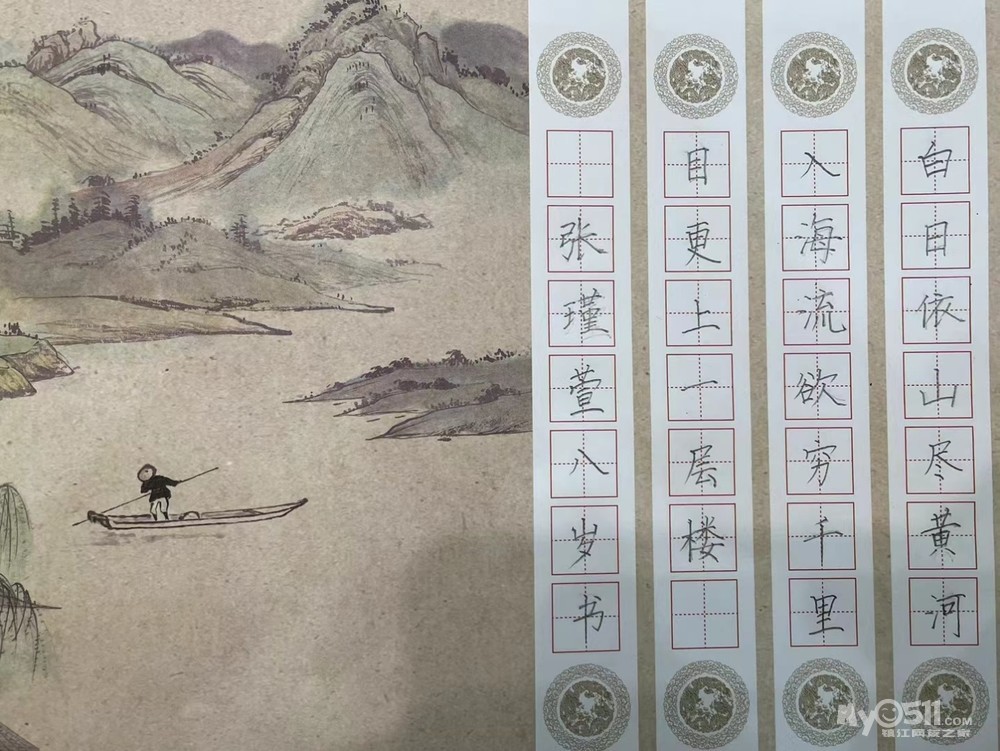 白日依山尽黄河
入海流欲穷千里
目更上一层楼
张瑾萱八岁书
My0511.COM
镇江网友之家